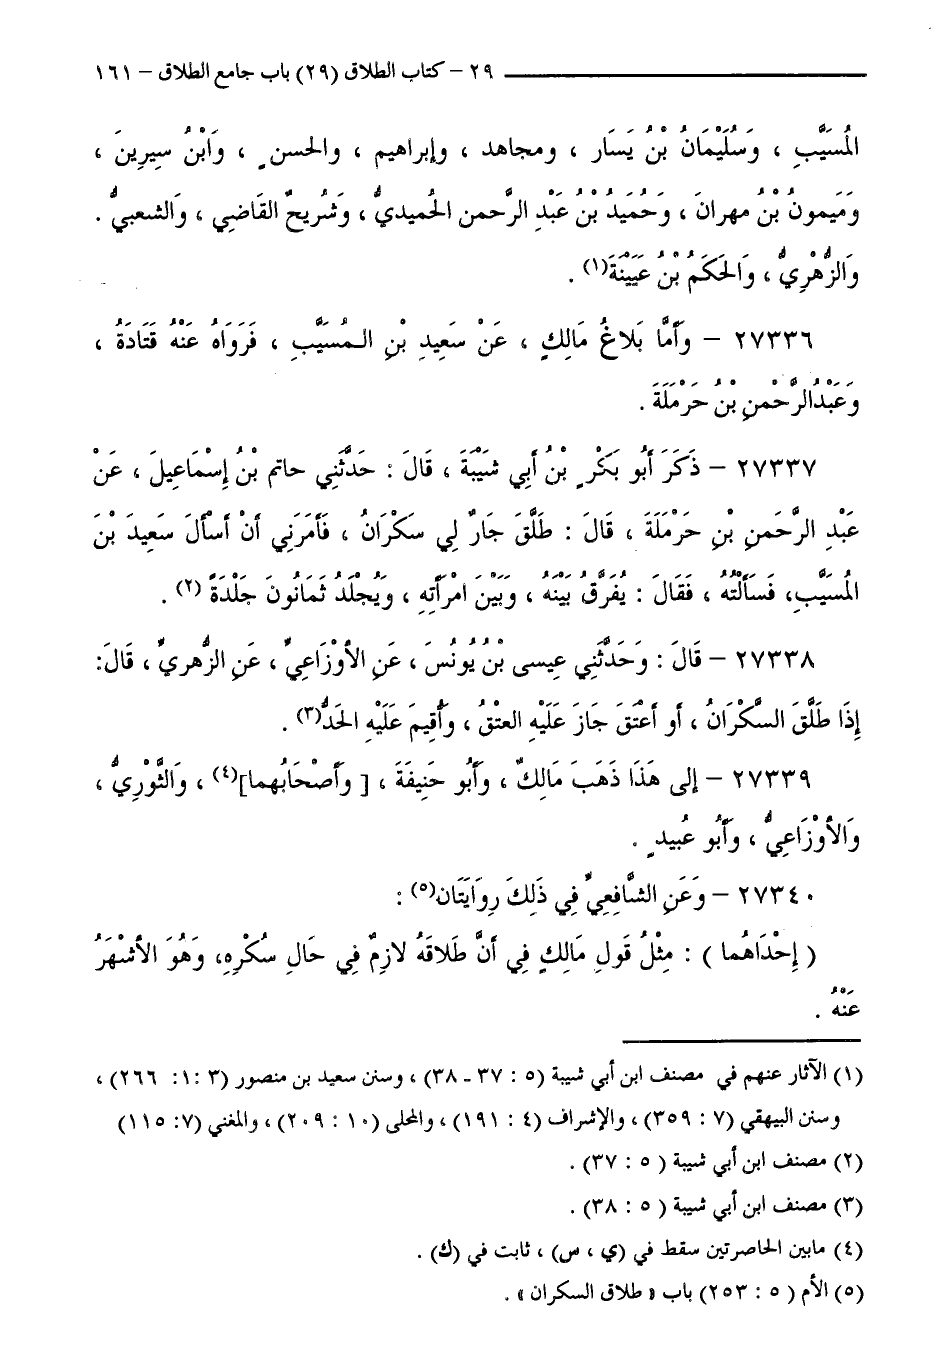 ٢٩ – كتاب الطلاق (٢٩) باب جامع الطلاق – ١٦١
المُسَيَّبِ ، وَسُلَيْمَانُ بْنُ يَسَار ، ومجاهد ، وإبراهيم ، والحسن ٍ ، وَابْنُ سِيرِينَ ،
وَمَيمونُ بْنُ مهرانَ ، وَحُمَيدُ بْنُ عَبْدِ الرَّحمن الحُميديُّ ، وَشُريحٌ القَاضِي ، وَالشعبيُّ .
وَالزُّهْرِيُّ ، وَالحَكَمُ بْنُ عُيَيْنَةَ(١) .
٢٧٣٣٦ – وَأَمَّا بَلاغُ مَالِكٍ ، عَنْ سَعِيدِ بْنِ الـمُسَيَّبِ ، فَرَوَاهُ عَنْهُ قَتَادَةُ ،
وَعَبْدُالرَّحْمنِ بْنُ حَرْمَلَةَ .
٢٧٣٣٧ – ذَكَرَ أَبُو بَكْرٍ بْنُ أَبِي شَيْبَةَ ، قَالَ : حَدَّثَنِي حاتم بْنُ إِسْمَاعِيلَ ، عَنْ
عَبْدِ الرَّحَمنِ بْنِ حَرْمَلَةَ ، قَالَ : طَلَّقَ جَارٌ لِي سَكْرَانُ ، فَأَمَرَنِي أَنْ أَسْأَلَ سَعِيدَ بْنَ
المُسَيَّبِ، فَسَأَلْتُهُ ، فَقَالَ : يُفَرَّقُ بَيْنَهُ ، وَبَيْنَ امْرَأَتِهِ ، وَيُجْلَدُ ثَمَانُونَ جَلْدَةً (٢) .
٢٧٣٣٨ – قَالَ : وَحَدَّثَنِي عِيسى بْنُ يُونُسَ ، عَنِ الأَوْزَاعِيِّ ، عَنِ الزُّهريِّ ، قَالَ:
إِذَا طَلَّقَ السَّكْرَانُ ، أَو أَعْتَقَ جَازَ عَلَيْهِ العتْقُ ، وَأُقِيمَ عَلَيْهِ الحَدُّ(٣) .
٢٧٣٣٩ – إِلى هَذَا ذَهَبَ مَالِكٌ ، وَأَبُو حَنِيفَةَ ، [ وَأَصْحَابُهما](٤) ، وَالثَّوْرِيُّ ،
وَالأَوْزَاعِيُّ ، وَأَبُو عُبيدٍ .
٢٧٣٤٠ – وَعَنِ الشَّافِعِيِّ فِي ذَلِكَ رِوَايَتَان(٥) :
( إِحْدَاهُما ) : مِثْلُ قَولِ مَالِكٍ فِي أَنَّ طَلاقَهُ لازِمٌ فِي حَالِ سُكْرِهِ، وَهُوَ الأَشْهَرُ
عَنْهُ .
(١) الآثار عنهم في مصنف ابن أبي شيبة (٥ : ٣٧ ـ ٣٨) ، وسنن سعيد بن منصور (٣ :١: ٢٦٦) ،
وسنن البيهقي (٧ : ٣٥٩) ، والإشراف (٤ : ١٩١) ، والمحلى (١٠ : ٢٠٩) ، والمغني (٧: ١١٥)
(٢) مصنف ابن أبي شيبة ( ٥ : ٣٧) .
(٣) مصنف ابن أبي شيبة ( ٥ : ٣٨) .
(٤) مابين الحاصرتين سقط في (ي ، س) ، ثابت في (ك) .
(٥) الأم ( ٥ : ٢٥٣) باب « طلاق السكران » .